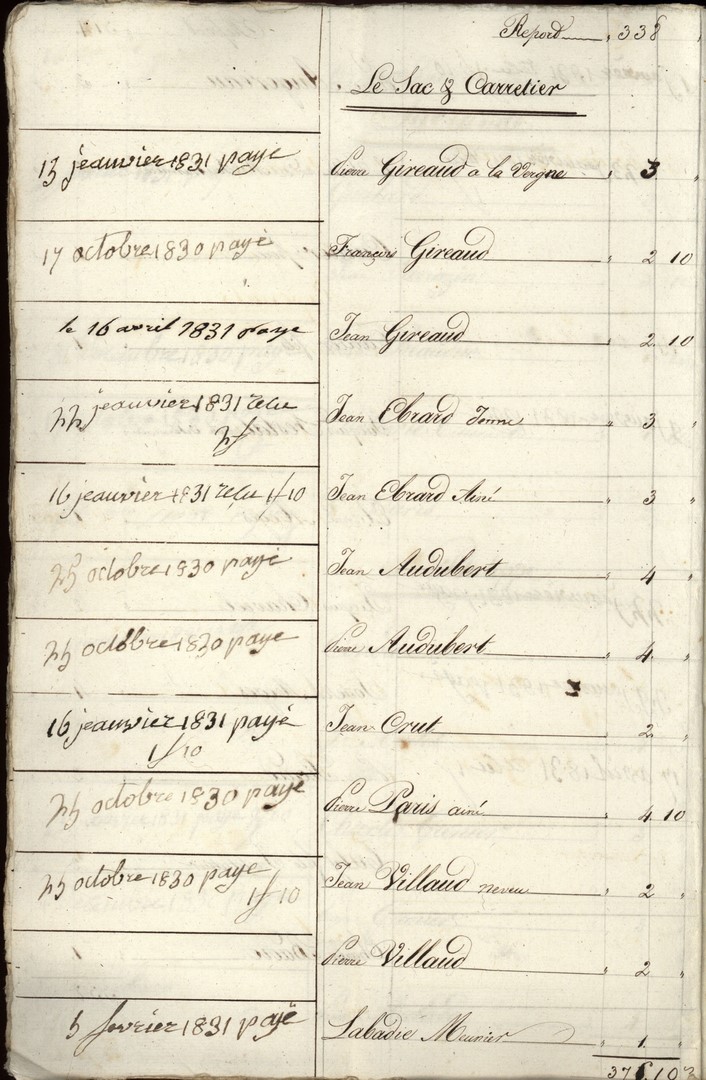 Repord „ 338 „
Le Sac & Carretier
13 jeanvier 1831 payé Pierre Gireaud a la Vergne „ 3 „
17 octobre 1830 payé François Gireaud „ 2 10
le 16 avril 1831 paye Jean Gireaud „ 2 10
22 jeanvier 1831 recu Jean Ebrard Jenne „ 3 „
2 f
16 jeanvier 1831 recu 1 f 10 Jean Ebrard Ainé „ 3 „
25 octobre 1830 payé Jean Audubert „ 4 „
25 octobre 1830 payé Pierre Audubert „ 4 „
16 jeanvier 1831 payé Jean Crut „ 2 „
1 f 10
25 octobre 1830 payé Pierre Paris ainé „ 4 10
25 octobre 1830 paye Jean Villaud neveu „ 2 „
1 f 10
Pierre Villaud „ 2 „
5 fevrier 1831 payé Labadie Meunier „ 1 „
10